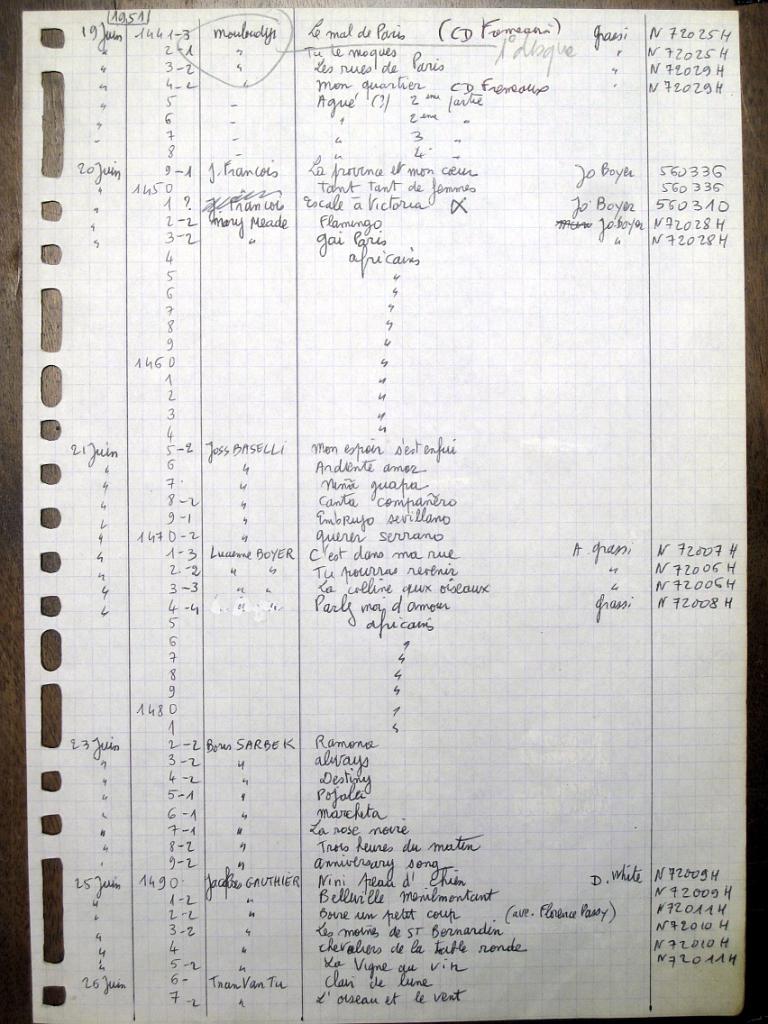 1951
19 Juin 1441-3 Mouloudji Le mal de Paris (CD Fremeaux) grassi N 72025H
" 2-1 " Tu te moques 1er disque " N 72025H
" 3-2 " Les rues de Paris " N 72029H
" 4-2 " Mon quartier CD Fremeaux " N 72029H
" 5 - Agué (?) 2eme partie
" 6 - " 2eme "
- 7 - " 3 "
- 8 - " 4 "
20 Juin 9-1 J. Francois La province et mon cœur Jo Boyer 560336
" 1450 Tant Tant de femmes 560336
" 1? Francois Escale à Victoria X Jo Boyer 560310
" 2-2 Mary Meade Flamingo Jo boyer N72028H
" 3-2 " gai Paris " N 72028H
4 africains
5 "
6 "
7 "
8 "
9 "
1460 "
1 "
2 "
3 "
4 "
21 Juin 5-2 Joss BASELLI Mon espoir s'est enfui
" 6 " Ardiente amor
" 7 " Niña guapa
" 8-2 " Canta compañero
" 9-1 " Embrujo sevillano
" 1470-2 " querer serrano
" 1-3 Lucienne BOYER C'est dans ma rue A. grassi N 72007 H
" 2-2 " " Tu pourras revenir " N 72006H
" 3-3 " " La colline aux oiseaux " N 72006H
" 4-4 " " Parlez moi d'amour grassi N 72008H
5 africains
6 "
7 "
8 "
9 "
1480 "
1 "
23 Juin 2-2 Boris SARBEK Ramona
" 3-2 " always
" 4-2 " Destiny
" 5-1 "
" 6-1 " marcheta
" 7-1 " La rose noire
" 8-2 " Trois heures du matin
" 9-2 " anniversary song
25 Juin 1490 Jacques GAUTHIER Nini peau d'chien D. White N72009H
" 1-2 " Belleville Menilmontant N72009H
" 2-2 " Boire un petit coup (avec Florence Passy) N72011H
" 3-2 " Les moines de ST Bernardin N72010H
" 4 " chevaliers de la table ronde N72010H
" 5-2 " La Vigne au vin N72011H
26 Juin 6- Tran Van Tu Clair de lune
7-2 " L'oiseau et le vent